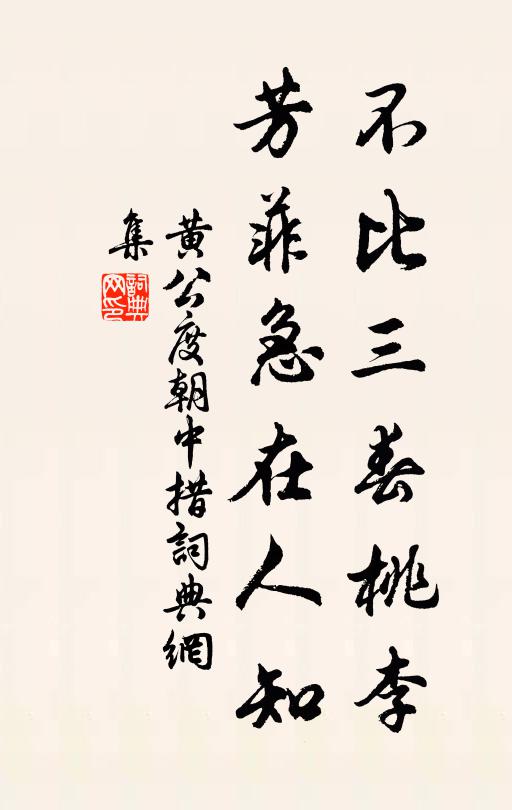 不比三春桃李
芳菲急在人知
黄公度朝中措詞典網
集
詞典
网印